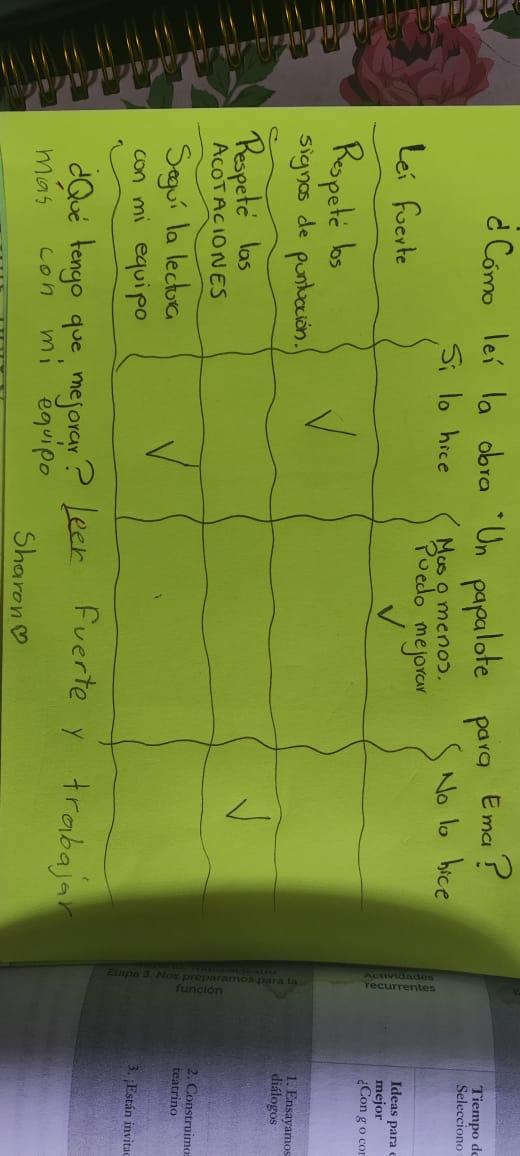 ¿Cómo leí la obra "Un papalote para Ema?
Sí lo hice
Mas o menos.
Puedo mejorar
No lo hice
Leí fuerte
✓
Respeté los
signos de puntuación.
✓
Respeté las
ACOTACIONES
✓
Seguí la lectura
con mi equipo
✓
¿Qué tengo que mejorar? Leer fuerte y trabajar
más con mi equipo
Sharon♡
Tiempo de
Selecciono
Actividades
recurrentes
Ideas para
mejor
¿Con g o co
Etapa 3. Nos preparamos para la
función
1. Ensayamos
diálogos
2. Construimo
teatrino
3. ¡Están invita